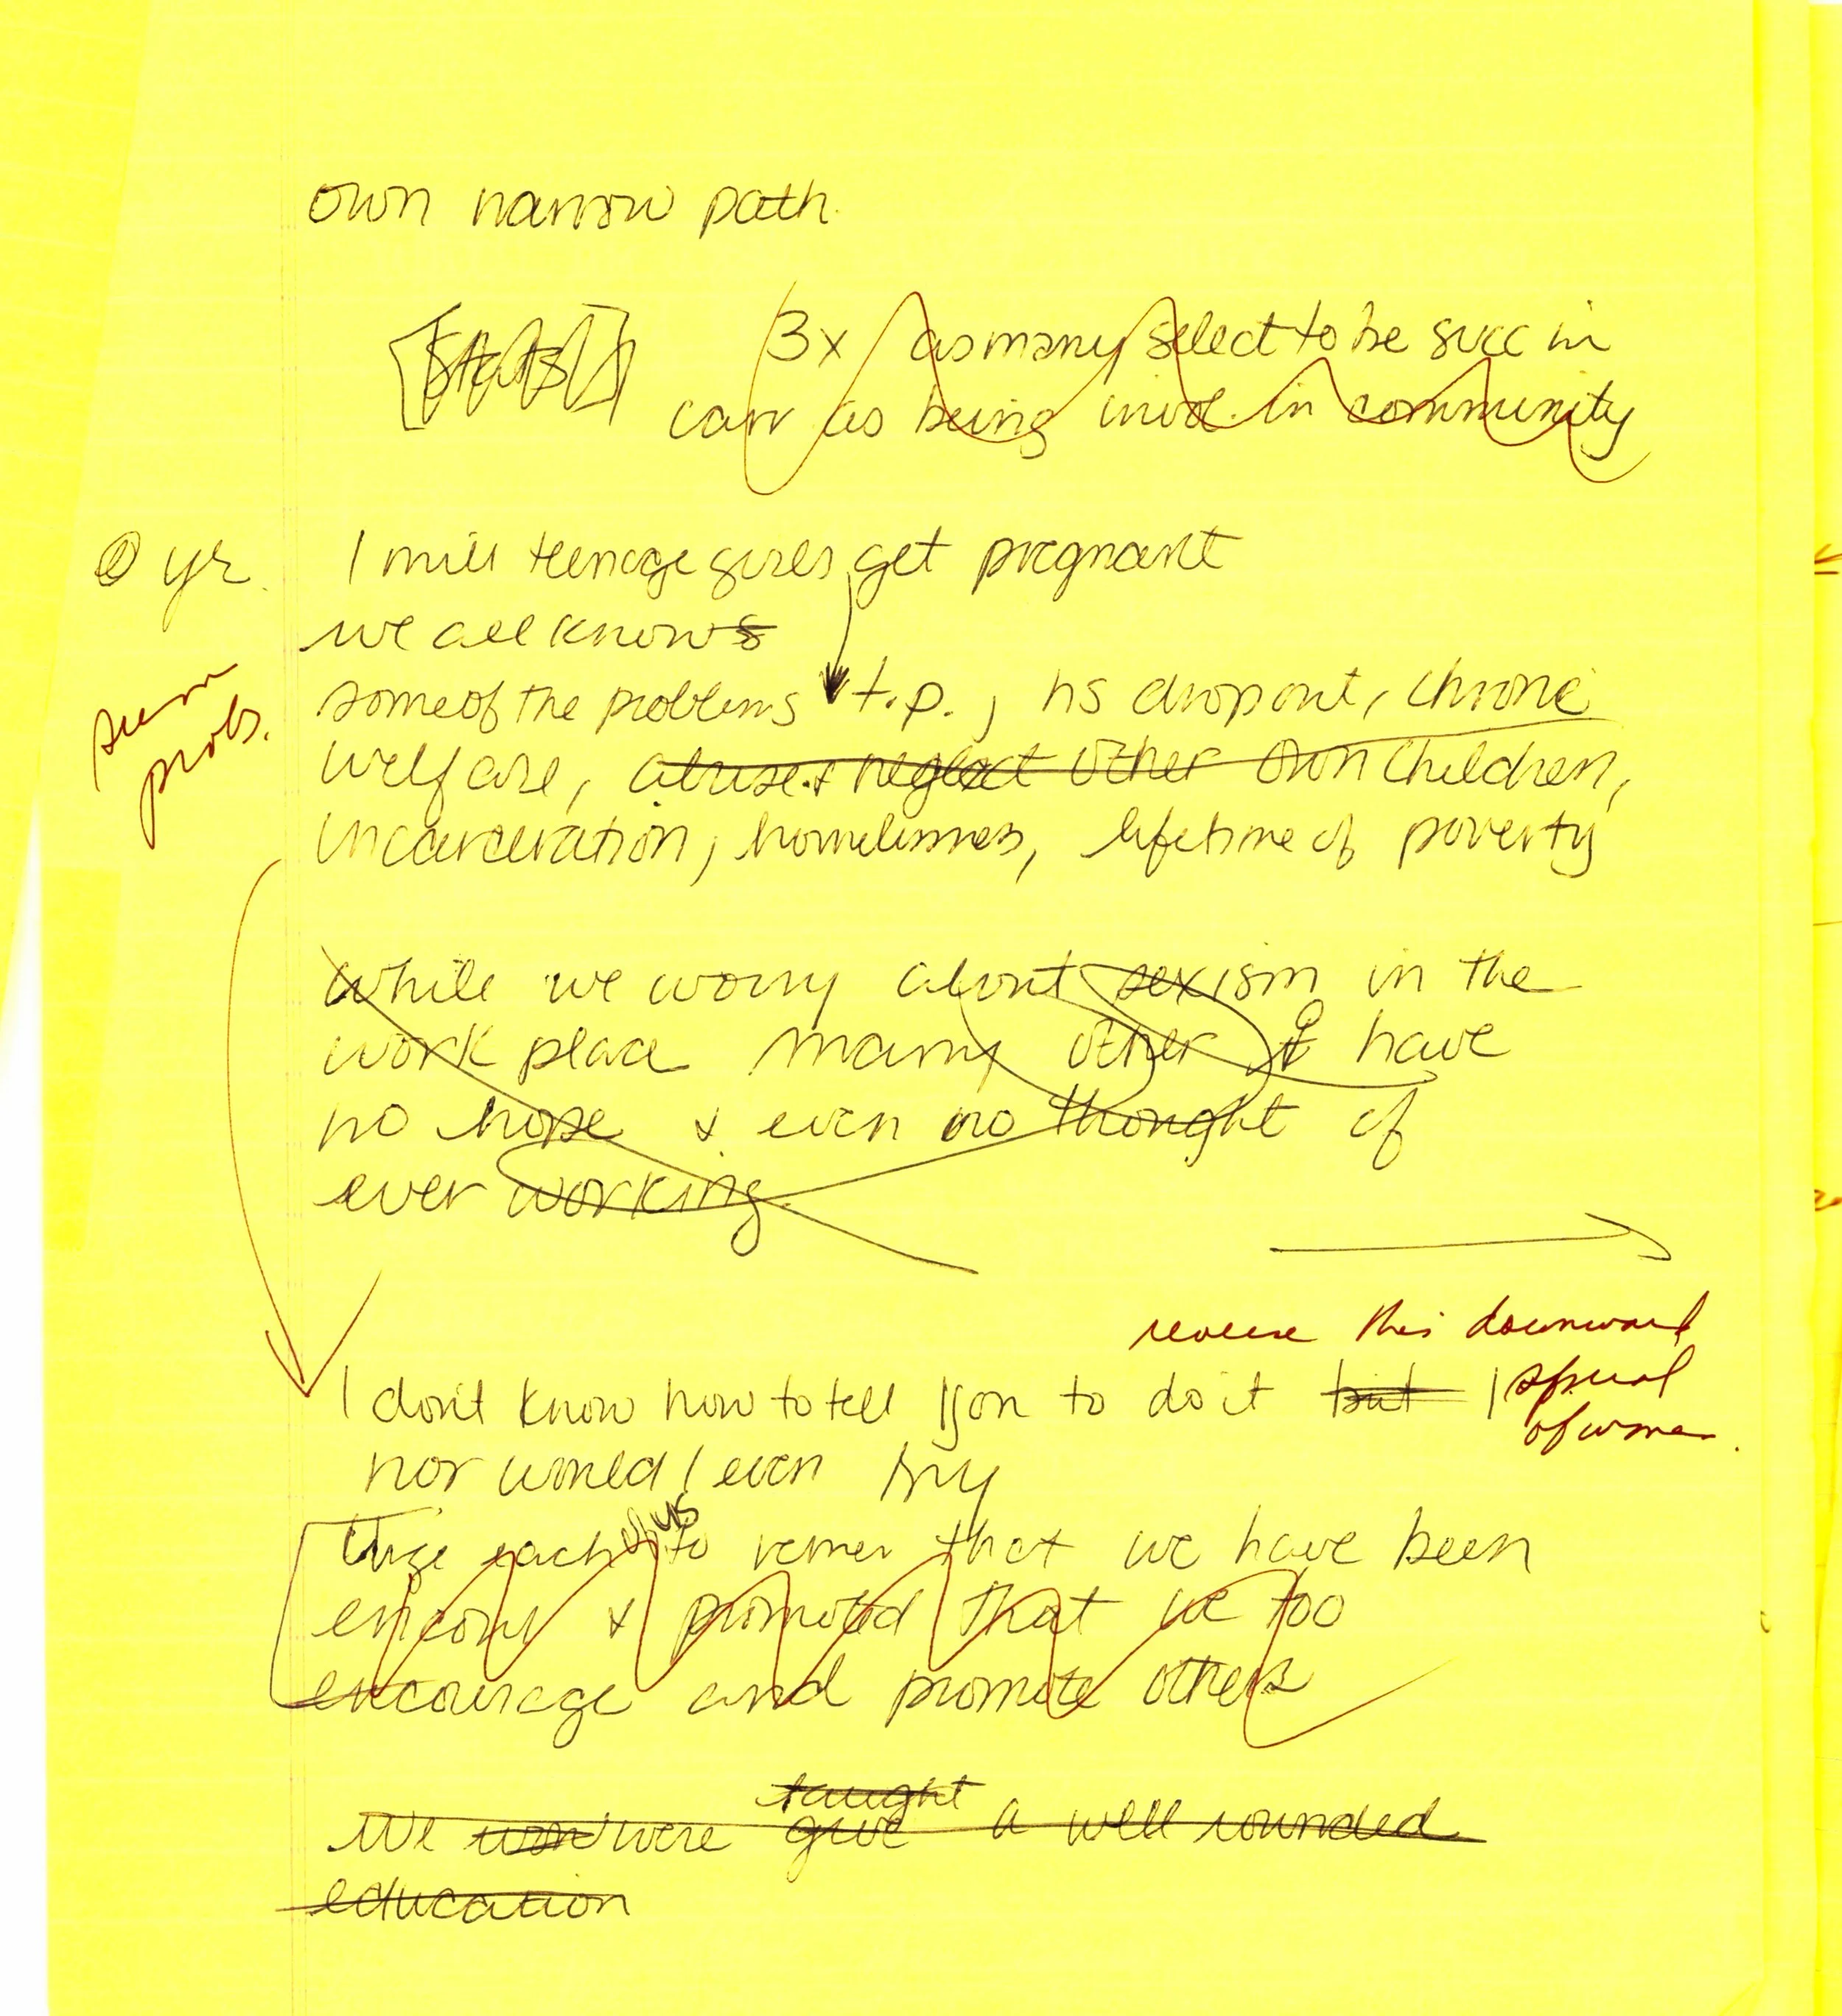 own narrow path.
[Stats]
3x as many select to be succ in
carr as being invol. in community
yr. 1 mill teenage girls get pregnant
we all knows
some of the problems t.p., hs dropout, chronic
welfare, abuse & neglect other own children,
incarceration, homelessness, lifetime of poverty
probs.
while we worry about sexism in the
work place many other have
no hope & even no thought of
ever working.
reverse this downward
spiral
of women.
I don't know how to tell you to do it but I
nor would I even try
us
Urge each of to remer that we have been
encour & promoted that we too
encourage and promote others
taught
We won were give a well rounded
education